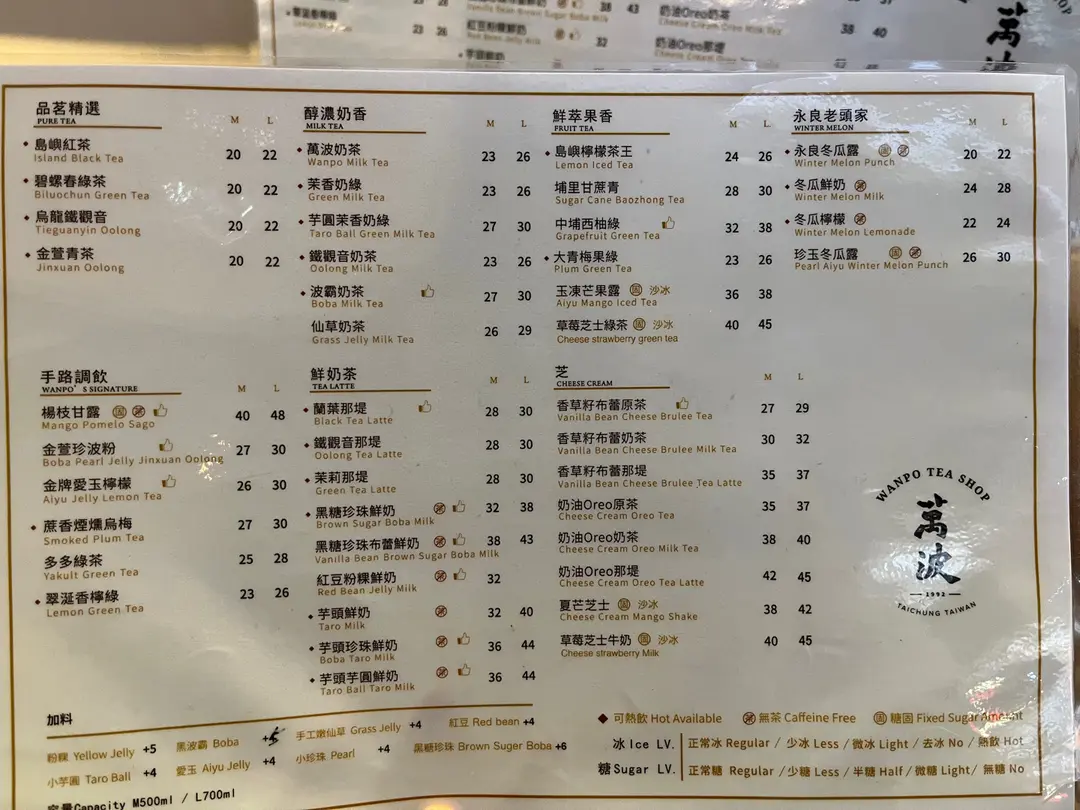 23 26
38 43
奶油Oreo奶茶
Cheese Cream Oreo Milk Tea
38 40
23 26
紅豆粉粿鮮奶
Red Bean Jelly Milk
32
奶油Oreo那堤
芋頭鮮奶
SHOP
萬
品茗精選
PURE TEA M L
島嶼紅茶 20 22
Island Black Tea
碧螺春綠茶 20 22
Biluochun Green Tea
烏龍鐵觀音 20 22
Tieguanyin Oolong
金萱青茶 20 22
Jinxuan Oolong
醇濃奶香
MILK TEA M L
萬波奶茶 23 26
Wanpo Milk Tea
茉香奶綠 23 26
Green Milk Tea
芋圓茉香奶綠 27 30
Taro Ball Green Milk Tea
鐵觀音奶茶 23 26
Oolong Milk Tea
波霸奶茶 27 30
Boba Milk Tea
仙草奶茶 26 29
Grass Jelly Milk Tea
鮮萃果香
FRUIT TEA M L
島嶼檸檬茶王 24 26
Lemon Iced Tea
埔里甘蔗青 28 30
Sugar Cane Baozhong Tea
中埔西柚綠 32 38
Grapefruit Green Tea
大青梅果綠 23 26
Plum Green Tea
玉凍芒果露 固 沙冰 36 38
Aiyu Mango Iced Tea
草莓芝士綠茶 固 沙冰 40 45
Cheese strawberry green tea
永良老頭家
WINTER MELON M L
永良冬瓜露 固 20 22
Winter Melon Punch
冬瓜鮮奶 24 28
Winter Melon Milk
冬瓜檸檬 22 24
Winter Melon Lemonade
珍玉冬瓜露 固 26 30
Pearl Aiyu Winter Melon Punch
手路調飲
WANPO'S SIGNATURE M L
楊枝甘露 固 40 48
Mango Pomelo Sago
金萱珍波粉 27 30
Boba Pearl Jelly Jinxuan Oolong
金牌愛玉檸檬 26 30
Aiyu Jelly Lemon Tea
蔗香煙燻烏梅 27 30
Smoked Plum Tea
多多綠茶 25 28
Yakult Green Tea
翠涎香檸綠 23 26
Lemon Green Tea
鮮奶茶
TEA LATTE M L
蘭葉那堤 28 30
Black Tea Latte
鐵觀音那堤 28 30
Oolong Tea Latte
茉莉那堤 28 30
Green Tea Latte
黑糖珍珠鮮奶 32 38
Brown Sugar Boba Milk
黑糖珍珠布蕾鮮奶 38 43
Vanilla Bean Brown Sugar Boba Milk
紅豆粉粿鮮奶 32
Red Bean Jelly Milk
芋頭鮮奶 32 40
Taro Milk
芋頭珍珠鮮奶 36 44
Boba Taro Milk
芋頭芋圓鮮奶 36 44
Taro Ball Taro Milk
芝
CHEESE CREAM M L
香草籽布蕾原茶 27 29
Vanilla Bean Cheese Brulee Tea
香草籽布蕾奶茶 30 32
Vanilla Bean Cheese Brulee Milk Tea
香草籽布蕾那堤 35 37
Vanilla Bean Cheese Brulee Tea Latte
奶油Oreo原茶 35 37
Cheese Cream Oreo Tea
奶油Oreo奶茶 38 40
Cheese Cream Oreo Milk Tea
奶油Oreo那堤 42 45
Cheese Cream Oreo Tea Latte
夏芒芝士 固 沙冰 38 42
Cheese Cream Mango Shake
草莓芝士牛奶 固 沙冰 40 45
Cheese strawberry Milk
WANPO TEA SHOP
萬波
1992
TAICHUNG TAIWAN
加料
粉粿 Yellow Jelly +5
黑波霸 Boba
手工嫩仙草 Grass Jelly +4
紅豆 Red bean +4
小芋圓 Taro Ball +4
愛玉 Aiyu Jelly +4
小珍珠 Pearl +4
黑糖珍珠 Brown Suger Boba +6
容量Capacity M500ml / L700ml
可熱飲 Hot Available 無茶 Caffeine Free 固 糖固 Fixed Sugar Amount
冰 Ice LV. 正常冰 Regular / 少冰 Less / 微冰 Light / 去冰 No / 熱飲 Hot
糖Sugar LV. 正常糖 Regular / 少糖 Less / 半糖 Half / 微糖 Light / 無糖 No